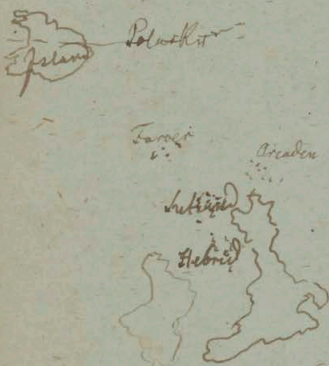 Polarkr
Island
Faroer
Orcaden
Hebrid